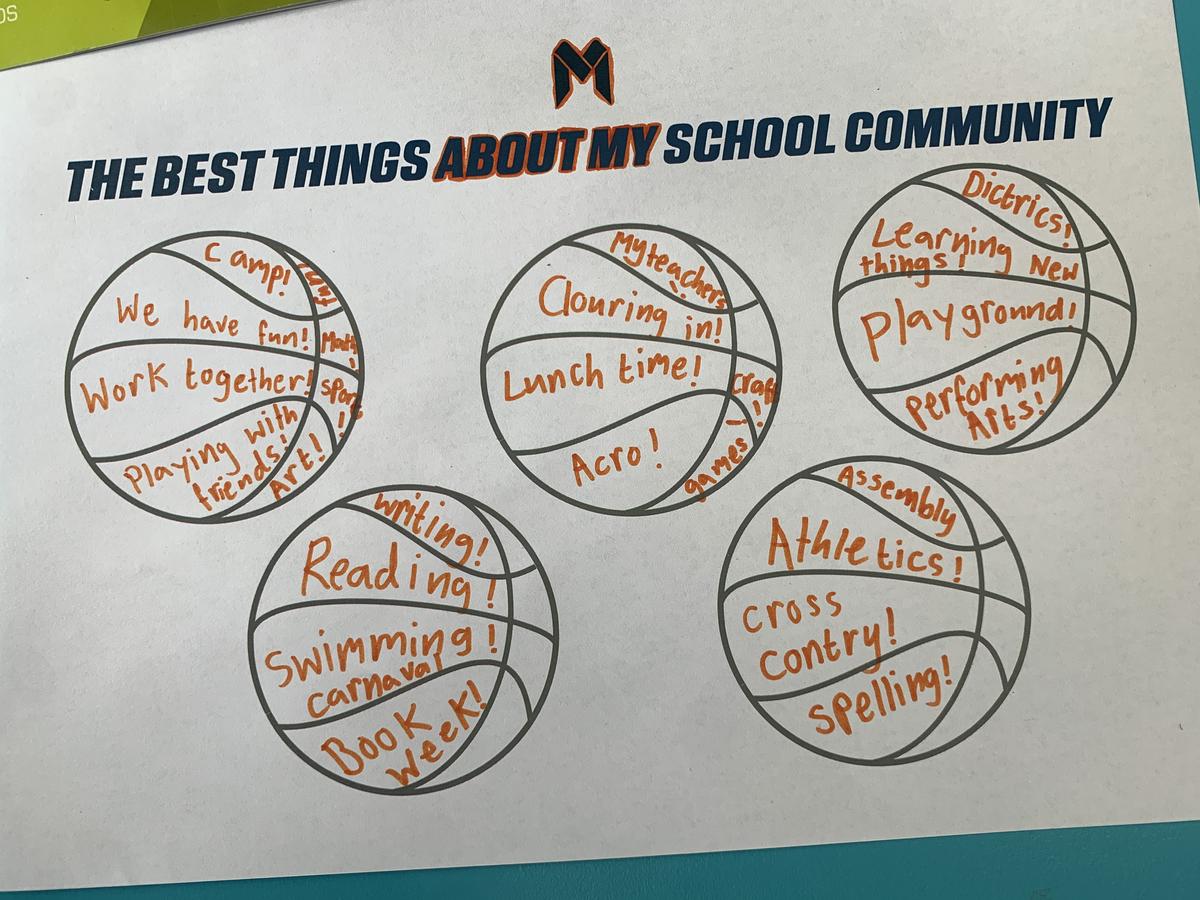 DS
M
THE BEST THINGS ABOUT MY SCHOOL COMMUNITY
Camp!
fun!
We have fun!
Math!
Work together!
Sport!
Playing with
friends!
Art!
My teachers!
Clouring in!
Lunch time!
craft!
Acro!
games!
Dictrics!
Learning New
things!
Playground!
Performing
Arts!
writing!
Reading!
Swimming!
carnaval
Book
Week!
Assembly
Athletics!
cross
contry!
spelling!